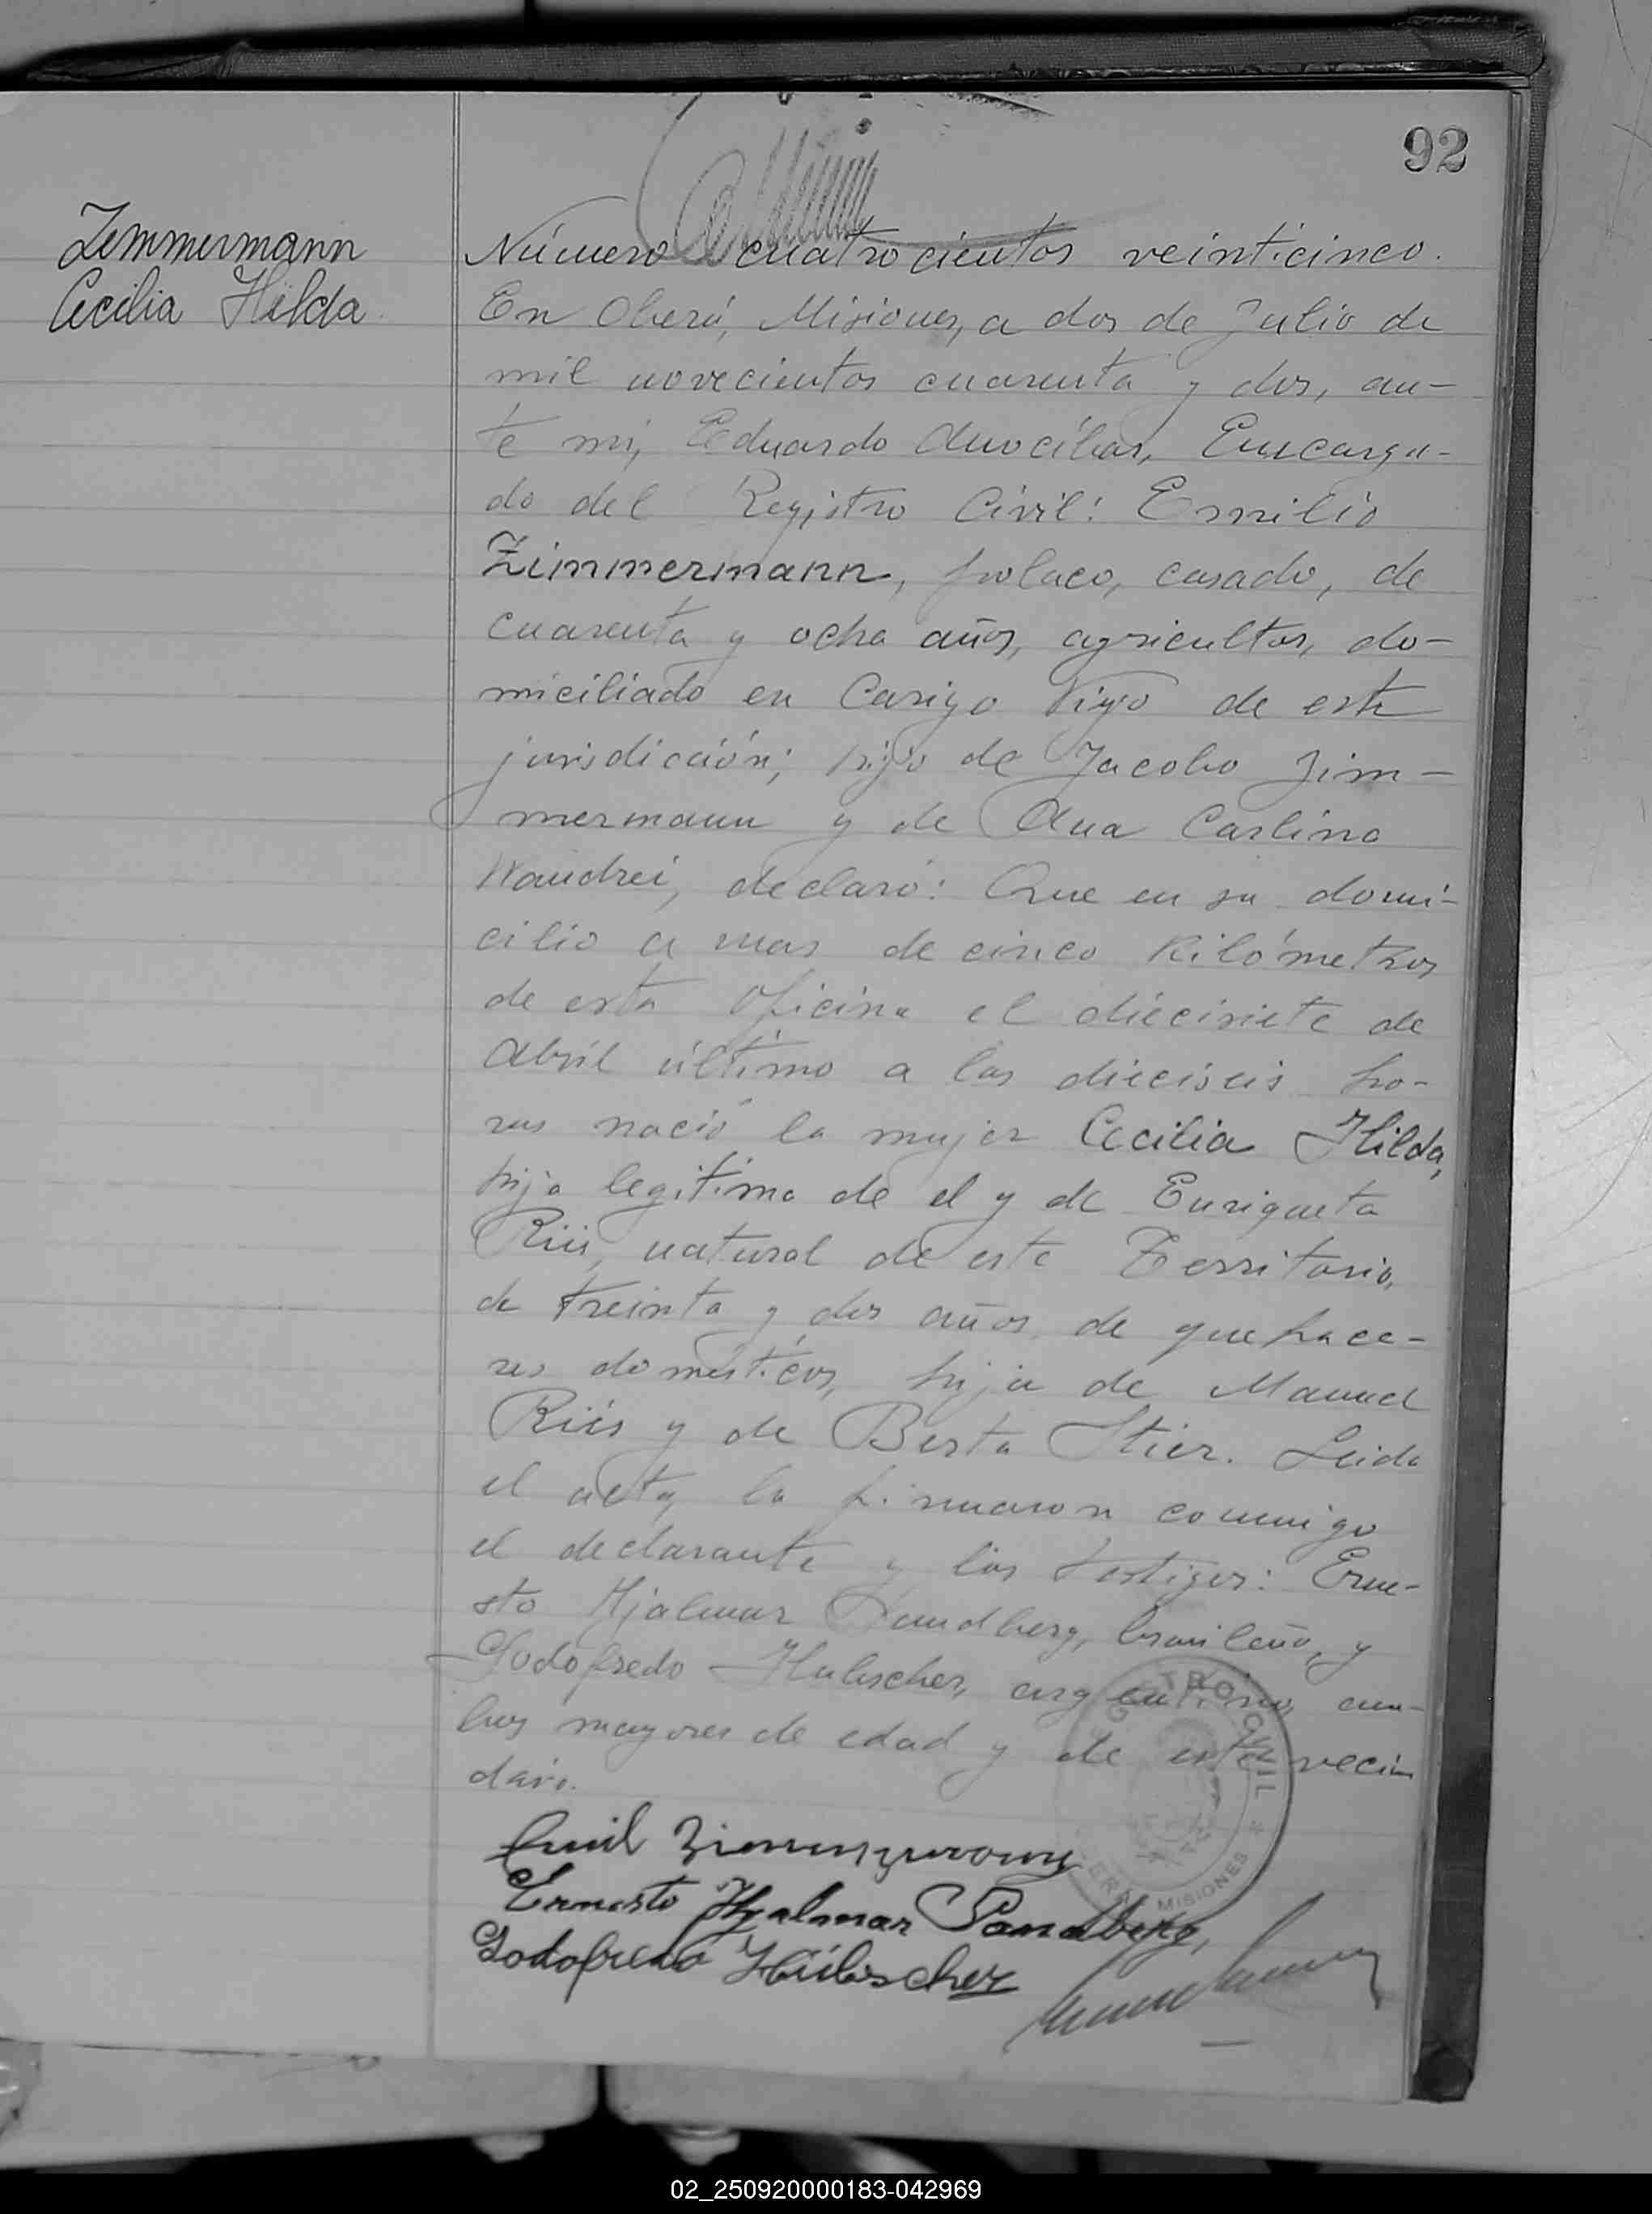 92
Zimmermann
Cecilia Hilda
Número cuatrocientos veinticinco.
En Oberá, Misiones, a dos de Julio de
mil novecientos cuarenta y dos, an-
te mi, Eduardo Encarga-
do del Registro Civil: Emilio
Zimmermann, polaco, casado, de
cuarenta y ocho años, agricultor, do-
miciliado en de esta
jurisdicción; hijo de Jacobo Zim-
mermann y de Ana Carlina
Wandrei, declaró: Que en su domi-
cilio a mas de cinco Kilómetros
de esta Oficina el diecisiete de
Abril último a las dieciseis ho-
ras nació la mujer Cecilia Hilda,
hija legitima de el y de Enriqueta
natural de este Territorio,
de treinta y dos años de quehace-
res domésticos, hija de Manuel
y de Berta Stier. Leida
el acta, la firmaron conmigo
el declarante y los testigos: Erne-
sto Hjalmar Sandberg, brasileño, y
Godofredo Hubscher, argentino, am-
bos mayores de edad y de este vecin
dario.
REGISTRO CIVIL
OBERA MISIONES
Emil Zimmermann
Ernesto Hjalmar Sandberg,
Godofredo Hübscher
02_250920000183-042969